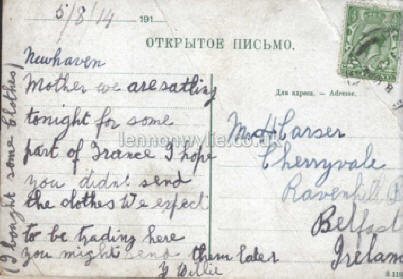 5/8/14 191
ОТКРЫТОЕ ПИСЬМО.
Newhaven
Mother we are satling
tonight for some
part of France I hope
you didnt send
the clothes we expect
to be trading here
you might send them later
Willie
(I bought some Clothes)
Для адреса. — Adresse.
Mrs H Carser
Cherryvale
Ravenhill
Belfast
Ireland
lennonwylie.co.uk